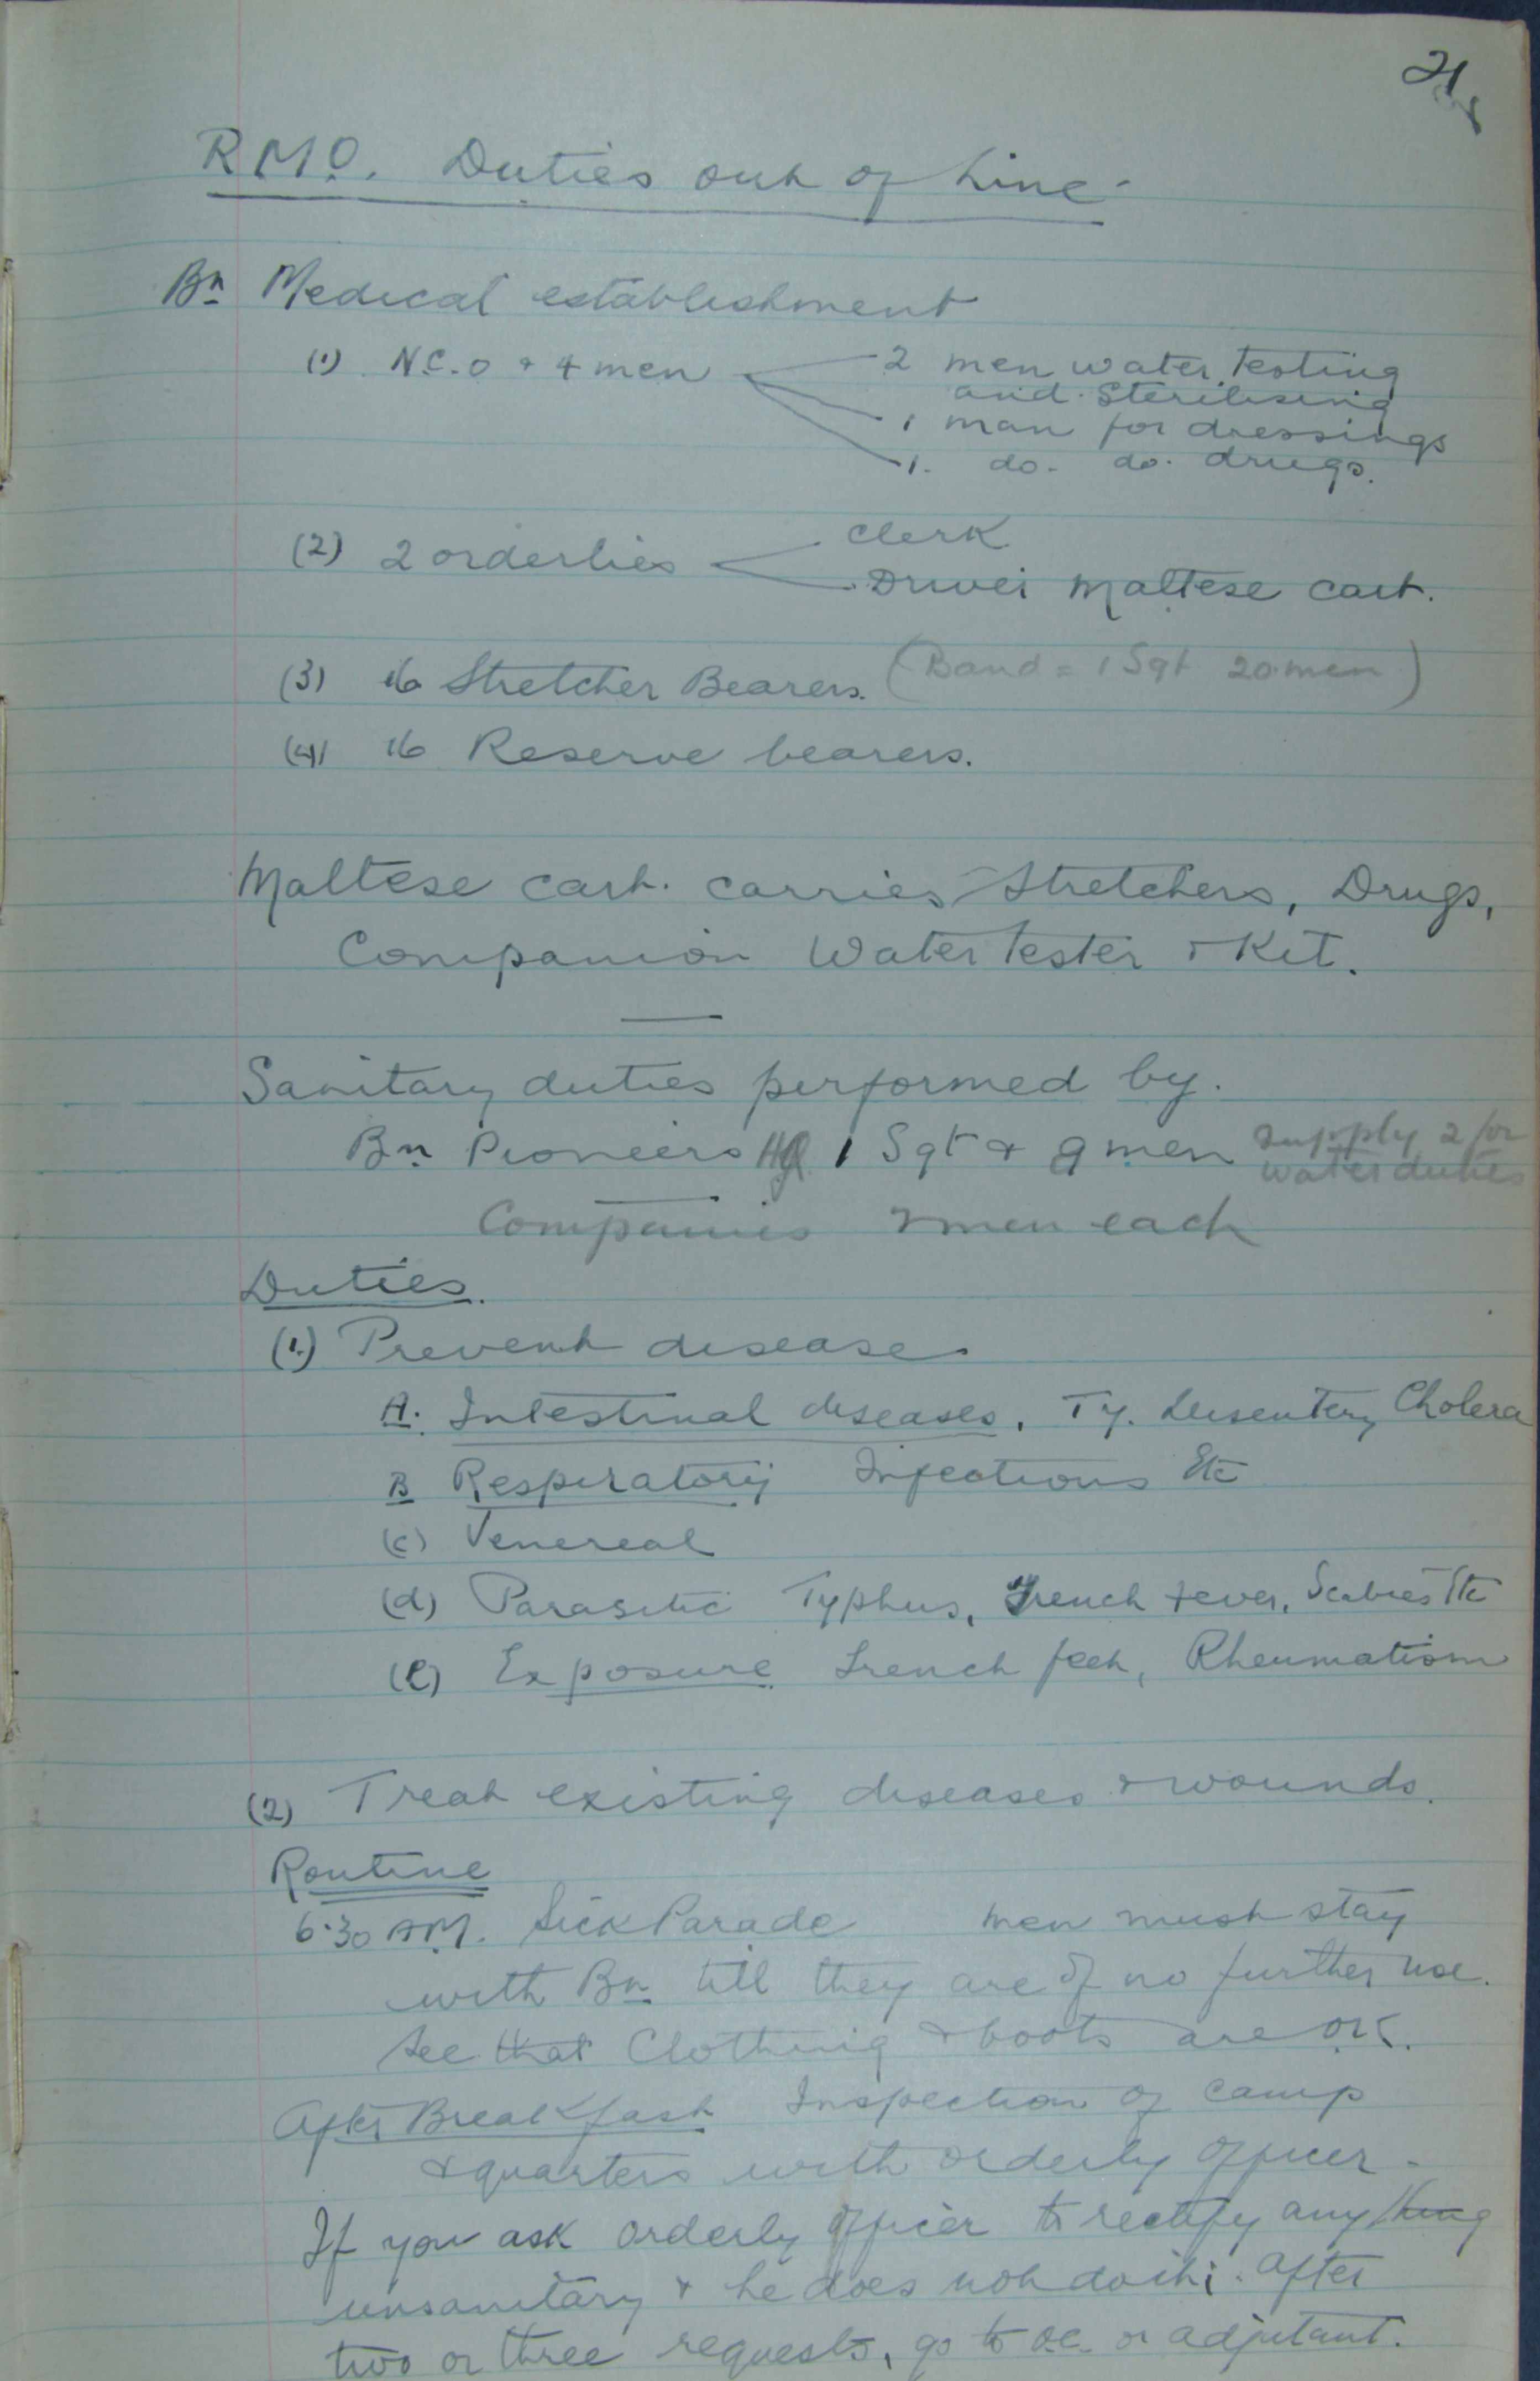 21
R.M.O. Duties out of Line
Bn Medical establishment
(1) N.C.O + 4 men 2 men water testing
and sterilising
1 man for dressings
1. do. do. drugs.
(2) 2 orderlies clerk
Driver Maltese cart.
(3) 16 Stretcher Bearers. (Band = 1 Sgt 20 men)
(4) 16 Reserve bearers.
Maltese cart. carries Stretchers, Drugs,
Companion Water Tester + Kit.
Sanitary duties performed by.
Bn Pioneers HQ 1 Sgt + 9 men supply 2 for
water duties
Companies men each
Duties.
(1.) Prevent disease
A. Intestinal diseases, Ty. Dysentery Cholera
B Respiratory Infections Etc
(c) Venereal
(d) Parasitic Typhus, Trench fever, Scabies Etc
(e) Exposure Trench feet, Rheumatism
(2) Treat existing diseases + wounds.
Routine
6.30 AM. Sick Parade men must stay
with Bn till they are of no further use.
See that Clothing + boots are OK.
After Breakfast Inspection of camp
+ quarters with orderly officer -
If you ask orderly officer to rectify anything
unsanitary + he does not do it; after
two or three requests, go to OC. or adjutant.